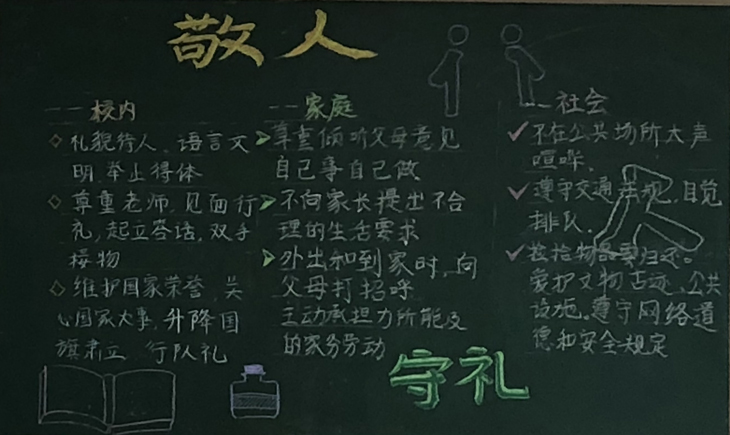 敬人
--校内
礼貌待人,语言文
明,举止得体
尊重老师,见面行
礼,起立答话,双手
接物
维护国家荣誉,关
心国家大事,升降国
旗肃立 行队礼
--家庭
尊重倾听父母意见
自己事自己做
不向家长提出不合
理的生活要求
外出和到家时,向
父母打招呼
主动承担力所能及
的家务劳动
--社会
不在公共场所大声
喧哗。
遵守交通法规,自觉
排队。
捡拾物品要归还。
爱护文物古迹、公共
设施。遵守网络道
德和安全规定
守礼